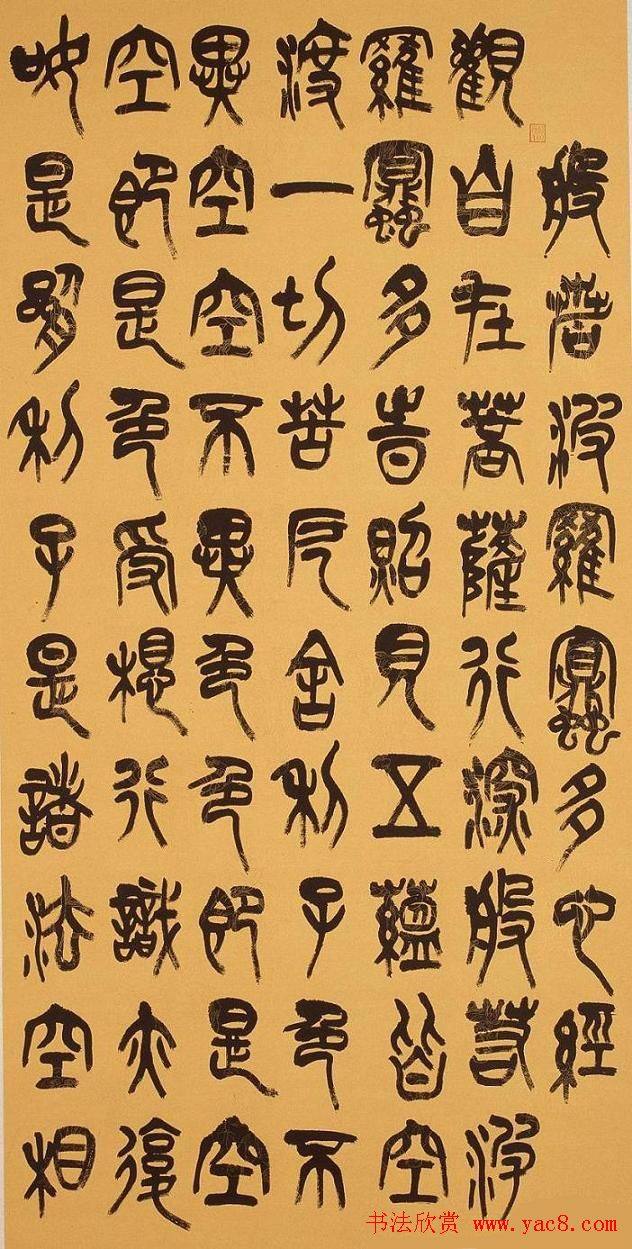 般若波羅蜜多心經
觀自在菩薩行深般若波
羅蜜多時照見五蘊皆空
渡一切苦厄舍利子色不
異空空不異色色即是空
空即是色受想行識亦復
如是利子是諸法空相
书法欣赏 www.yac8.com